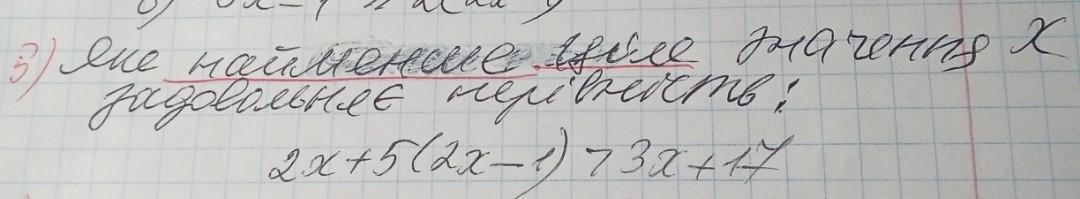 3) Яке найменше ціле значення x
задовольняє нерівність:
2x+5(2x-1)>3x+17